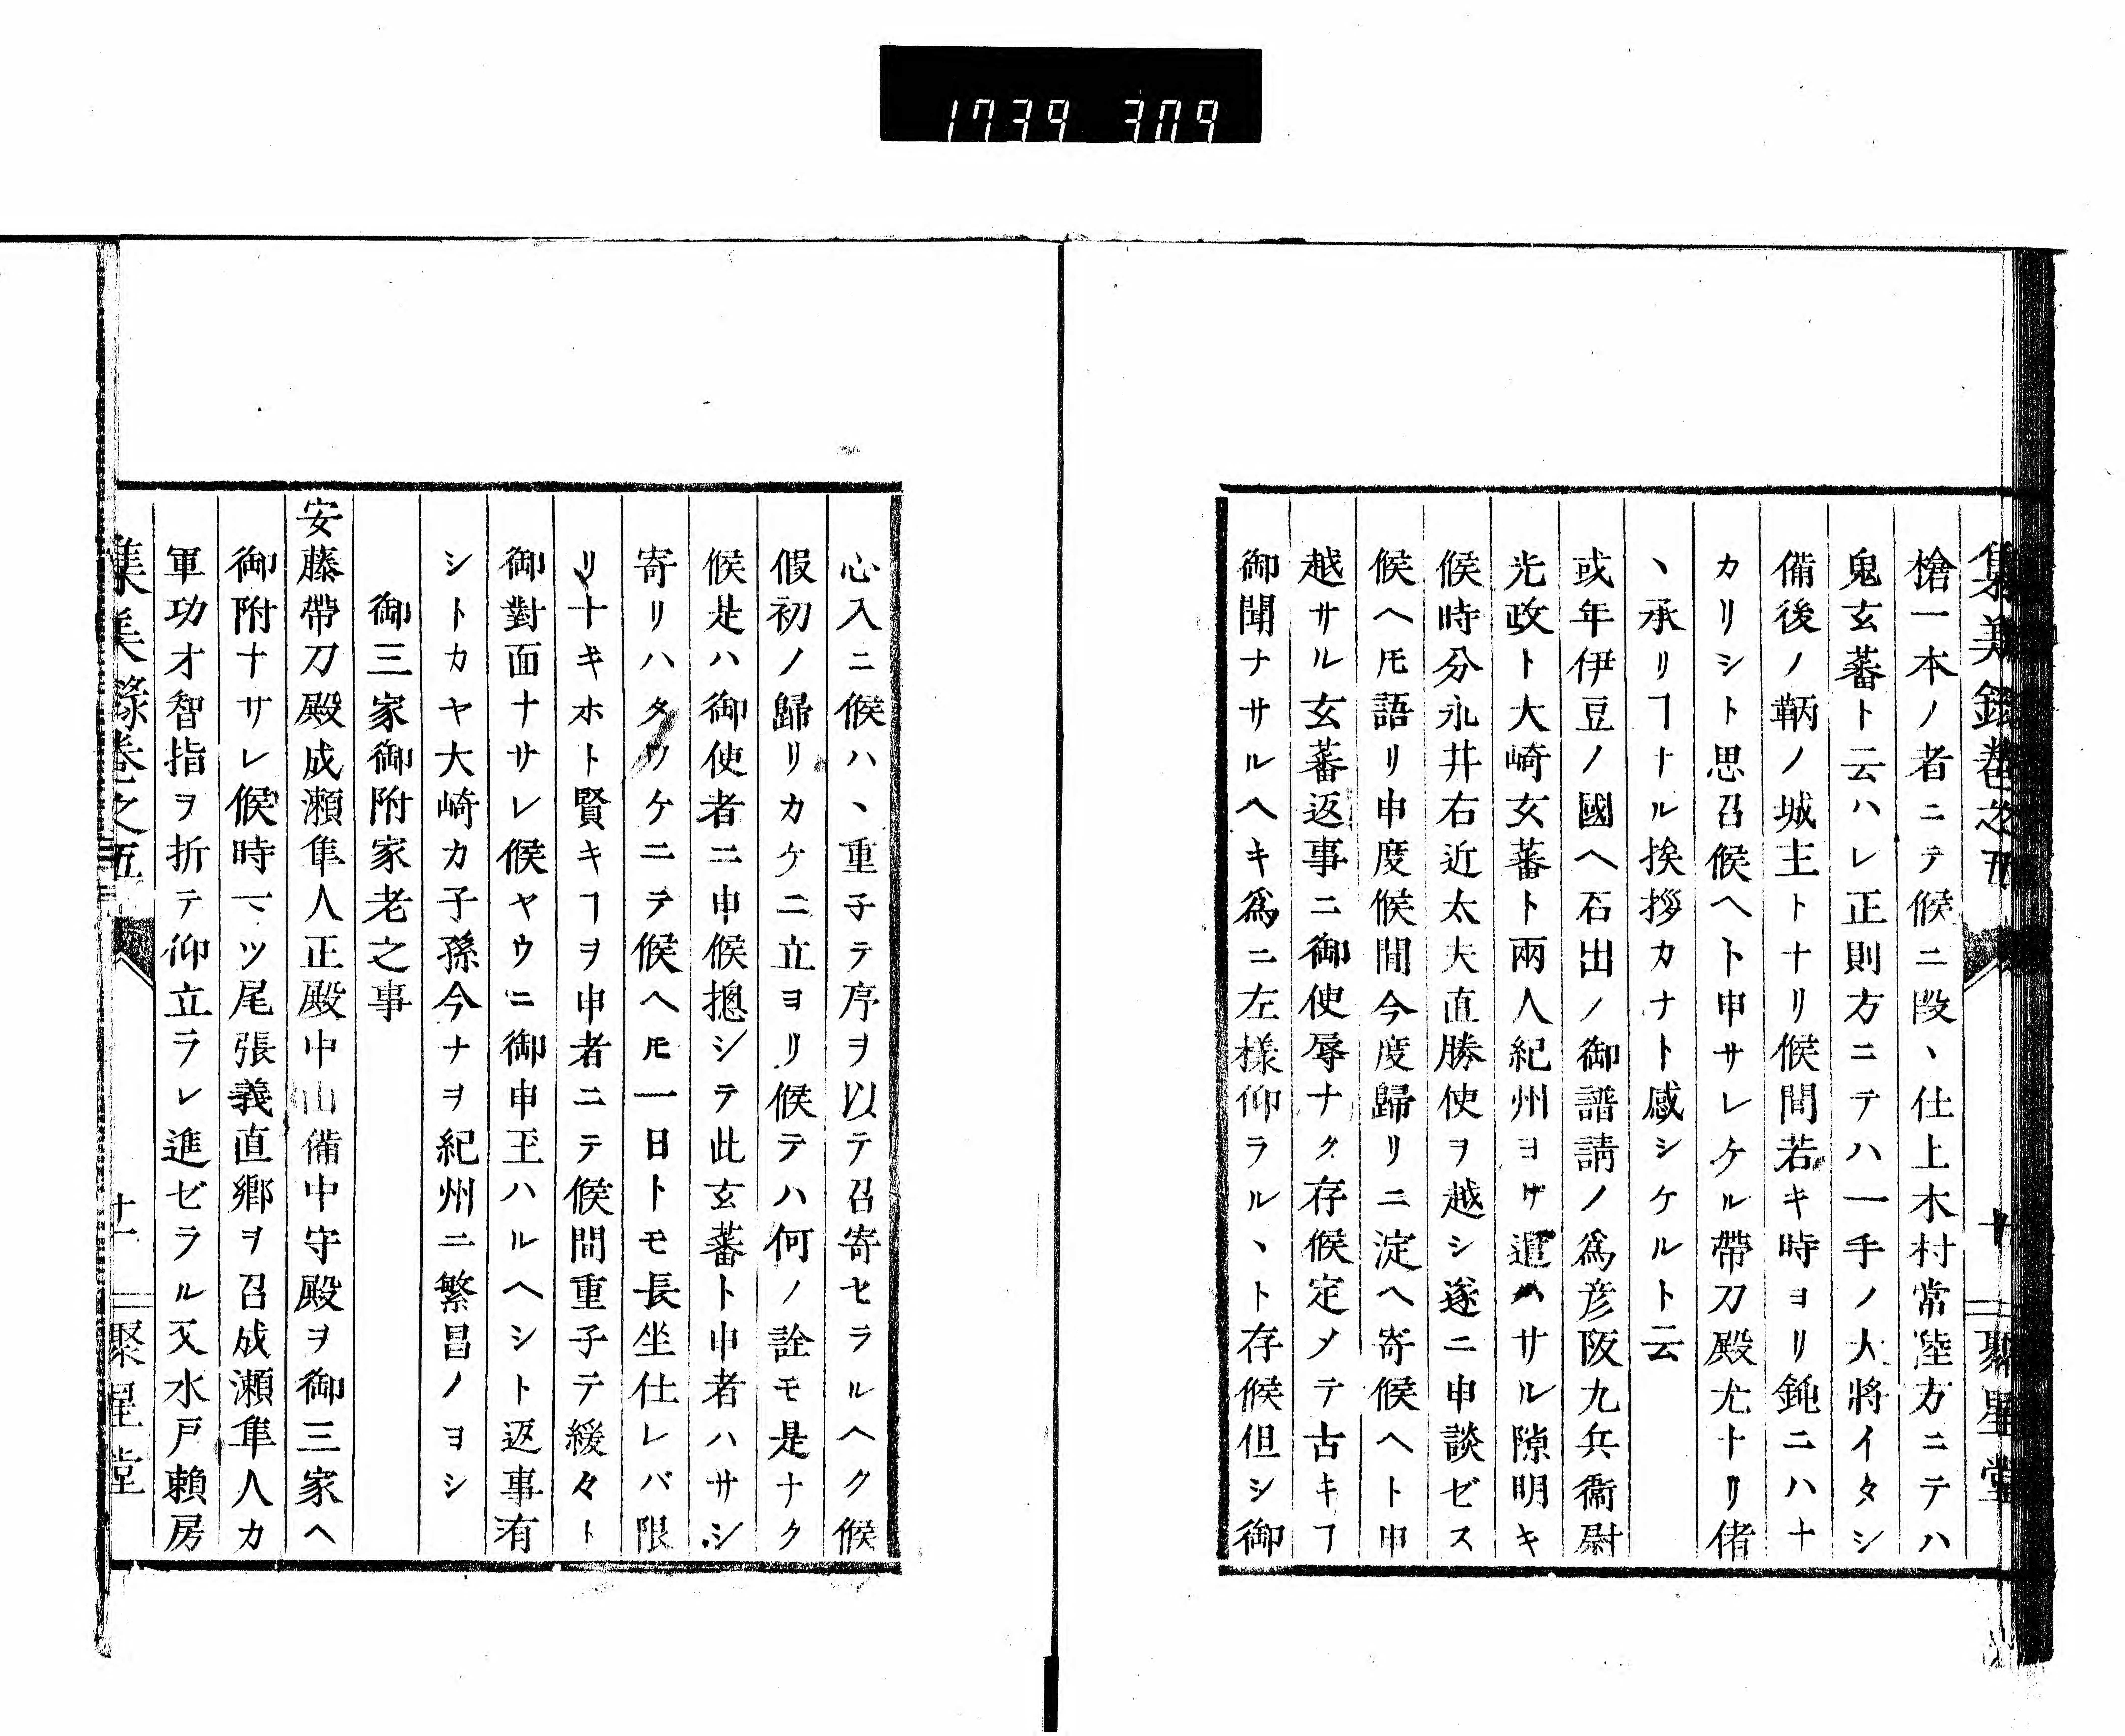 1739 309
集美録巻之五
十
聚星堂
槍一本ノ者ニテ候ニ段ヽ仕上木村常陸方ニテハ
鬼玄蕃ト云ハレ正則方ニテハ一手ノ大將イタシ
備後ノ鞆ノ城主トナリ候間若キ時ヨリ鈍ニハナ
カリシト思召候ヘト申サレケル帶刀殿尤トリ偖
ヽ承リヿナル挨拶カナト感シケルト云
或年伊豆ノ國ヘ石出ノ御譜請ノ爲彦阪九兵衞尉
光政ト大崎玄蕃ト兩人紀州ヨリ遣ハサル隙明キ
候時分永井右近太夫直勝使ヲ越シ遂ニ申談ゼス
候ヘ𪜈語リ申度候間今度歸リニ淀ヘ寄候ヘト申
越サル玄蕃返事ニ御使辱ナク存候定メテ古キヿ
御聞ナサルヘキ爲ニ左樣仰ラルヽト存候但シ御
心入ニ候ハヽ重子テ序ヲ以テ召寄セラルヘク候
假初ノ歸リカケニ立ヨリ候テハ何ノ詮モ是ナク
候是ハ御使者ニ申候摠シテ此玄蕃ト申者ハサシ
寄リハタワケニテ候ヘ𪜈一日トモ長坐仕レバ限
リナキホト賢キヿヲ申者ニテ候間重子テ緩々ト
御對面ナサレ候ヤウニ御申玉ハルヘシト返事有
シトカヤ大崎カ子孫今ナヲ紀州ニ繁昌ノヨシ
御三家御附家老之事
安藤帶刀殿成瀬隼人正殿中山備中守殿ヲ御三家ヘ
御附ナサレ候時一ツ尾張義直鄕ヲ召成瀬隼人カ
軍功才智指ヲ折テ仰立ラレ進ゼラル又水戸賴房
集美録巻之五
十一
聚星堂